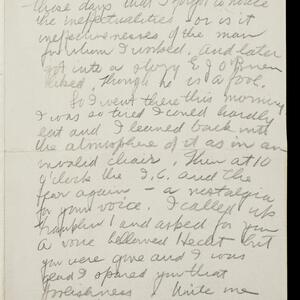 those days that I forgot to notice
the ineffectualities or is it
ineffectivenesses, of the man
for whom I worked. and later
got into a story E. J. O'Brien
liked, though he is a fool.
So I went there this morning
I was so tired I could hardly
eat and I leaned back into
the atmosphere of it as in an
invalid chair. Then at 10
o'clock the I.C. and the
fear again — a nostalgia
for your voice. I called up
Franklin 1 and asked for you
a voice bellowed Hecht but
you were gone and I was
glad I spared you that
foolishness. Write me